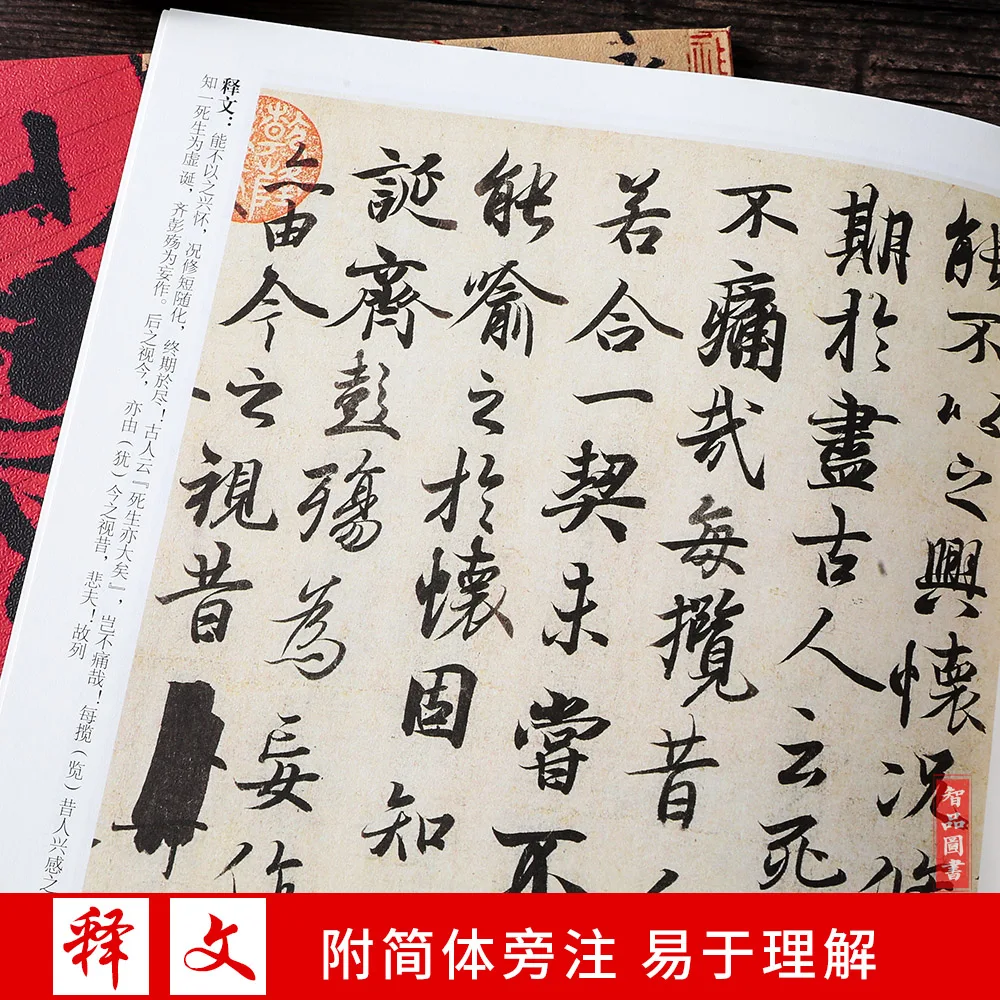 能不以之興懷况
期於盡古人云死
不痛哉每攬昔
若合一契未嘗不
能喻之於懷固知
誕齊彭殤為妄作
亦由今之視昔
释文：能不以之兴怀，况修短随化，终期於尽！古人云『死生亦大矣』，岂不痛哉！每揽（览）昔人兴感之
知一死生为虚诞，齐彭殇为妄作。后之视今，亦由（犹）今之视昔，悲夫！故列
智品圖書
释文
附简体旁注 易于理解